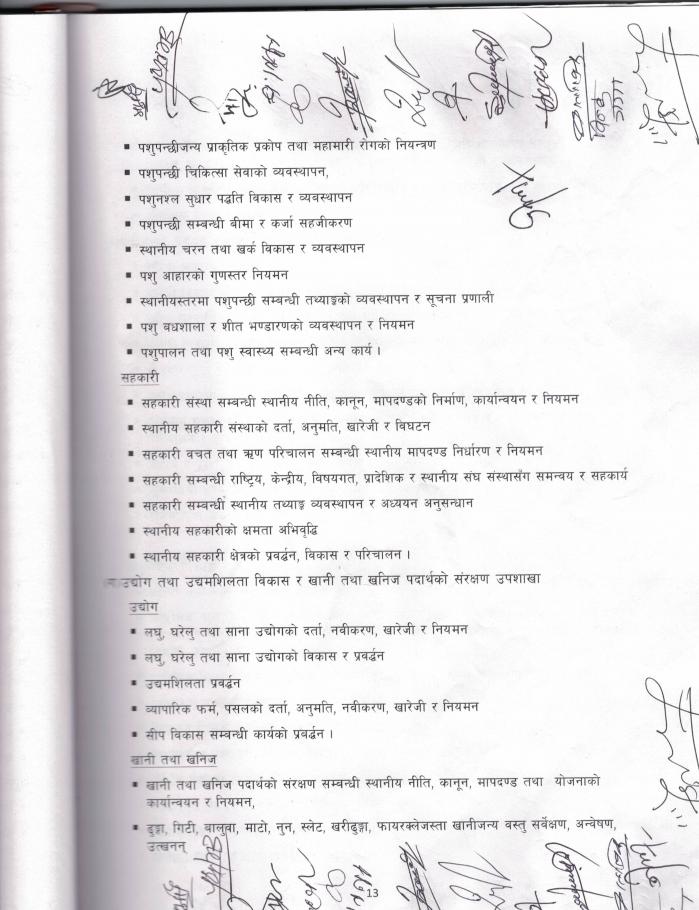 ▪ पशुपन्छीजन्य प्राकृतिक प्रकोप तथा महामारी रोगको नियन्त्रण
▪ पशुपन्छी चिकित्सा सेवाको व्यवस्थापन,
▪ पशुनश्ल सुधार पद्धति विकास र व्यवस्थापन
▪ पशुपन्छी सम्बन्धी बीमा र कर्जा सहजीकरण
▪ स्थानीय चरन तथा खर्क विकास र व्यवस्थापन
▪ पशु आहारको गुणस्तर नियमन
▪ स्थानीयस्तरमा पशुपन्छी सम्बन्धी तथ्याङ्कको व्यवस्थापन र सूचना प्रणाली
▪ पशु वधशाला र शीत भण्डारणको व्यवस्थापन र नियमन
▪ पशुपालन तथा पशु स्वास्थ्य सम्बन्धी अन्य कार्य ।
सहकारी
▪ सहकारी संस्था सम्बन्धी स्थानीय नीति, कानून, मापदण्डको निर्माण, कार्यान्वयन र नियमन
▪ स्थानीय सहकारी संस्थाको दर्ता, अनुमति, खारेजी र विघटन
▪ सहकारी वचत तथा ऋण परिचालन सम्बन्धी स्थानीय मापदण्ड निर्धारण र नियमन
▪ सहकारी सम्बन्धी राष्ट्रिय, केन्द्रीय, विषयगत, प्रादेशिक र स्थानीय संघ संस्थासँग समन्वय र सहकार्य
▪ सहकारी सम्बन्धी स्थानीय तथ्याङ्क व्यवस्थापन र अध्ययन अनुसन्धान
▪ स्थानीय सहकारीको क्षमता अभिवृद्धि
▪ स्थानीय सहकारी क्षेत्रको प्रवर्द्धन, विकास र परिचालन ।
उद्योग तथा उद्यमशिलता विकास र खानी तथा खनिज पदार्थको संरक्षण उपशाखा
उद्योग
▪ लघु, घरेलु तथा साना उद्योगको दर्ता, नवीकरण, खारेजी र नियमन
▪ लघु, घरेलु तथा साना उद्योगको विकास र प्रवर्द्धन
▪ उद्यमशिलता प्रवर्द्धन
▪ व्यापारिक फर्म, पसलको दर्ता, अनुमति, नवीकरण, खारेजी र नियमन
▪ सीप विकास सम्बन्धी कार्यको प्रवर्द्धन ।
खानी तथा खनिज
▪ खानी तथा खनिज पदार्थको संरक्षण सम्बन्धी स्थानीय नीति, कानून, मापदण्ड तथा योजनाको
कार्यान्वयन र नियमन,
▪ ढुङ्गा, गिटी, वालुवा, माटो, नुन, स्लेट, खरीढुङ्गा, फायरक्लेजस्ता खानीजन्य वस्तु सर्वेक्षण, अन्वेषण,
उत्खनन्
13